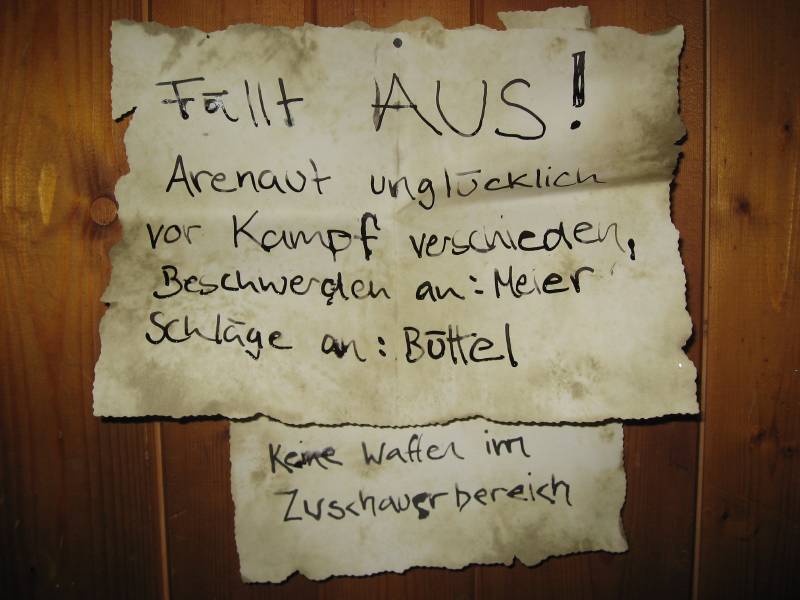 Fällt AUS!
Arenaut unglücklich
vor Kampf verschieden,
Beschwerden an: Meier
Schläge an: Büttel
Keine Waffen im
Zuschauerbereich